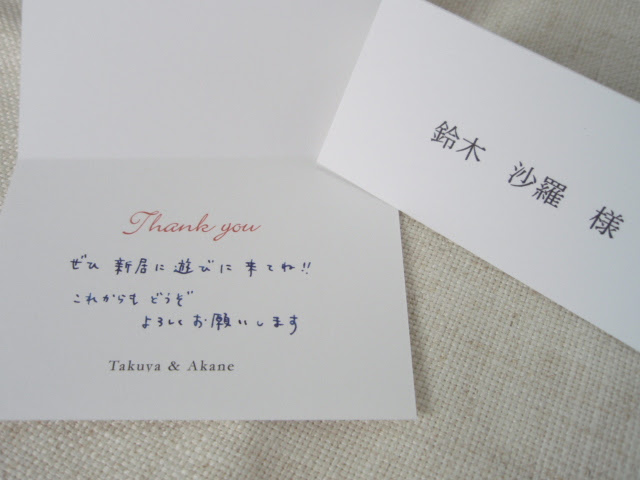 Thank you
ぜひ 新居に 遊びに 来てね!!
これからも どうぞ
よろしく お願いします
Takuya & Akane
鈴木 沙羅 様